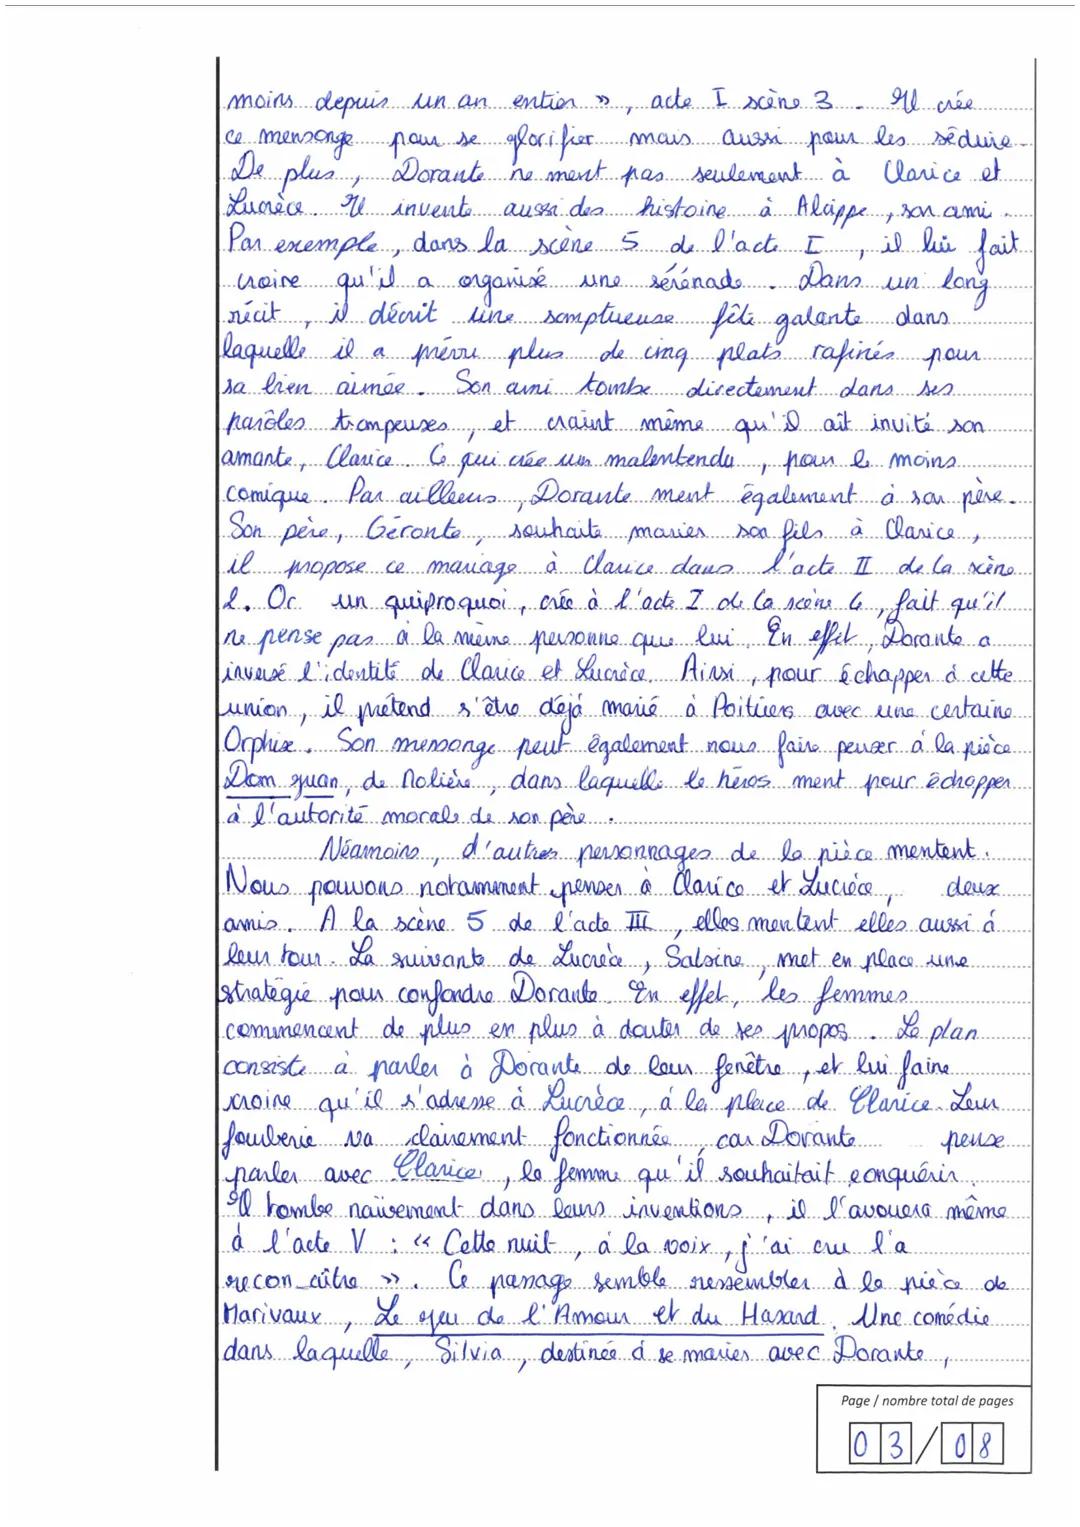 moins depuis un an entier », acte I scène 3. Il crée
ce mensonge pour se glorifier mais aussi pour les séduire.
De plus, Dorante ne ment pas seulement à Clarice et
Lucrèce. Il invente aussi des histoire à Alcippe, son ami.
Par exemple, dans la scène 5 de l'acte I, il lui fait
croire qu'il a organisé une sérénade. Dans un long
récit, il décrit une somptueuse fête galante dans
laquelle il a prévu plus de cinq plats rafinés pour
sa bien aimée. Son ami tombe directement dans ses
parôles trompeuses, et craint même qu'il aît invité son
amante, Clarice. Ce qui crée un malentendu, pour le moins
comique. Par ailleurs, Dorante ment également à son père.
Son père, Géronte, souhaite marier son fils à Clarice,
il propose ce mariage à Clarice dans l'acte II de la scène
1. Or un quiproquoi, crée à l'acte I de la scène 6, fait qu'il
ne pense pas à la même personne que lui. En effet, Dorante a
inversé l'identité de Clarice et Lucrèce. Ainsi, pour échapper à cette
union, il prétend s'être déjà marié à Poitiers avec une certaine
Orphise. Son mensonge peut également nous faire penser à la pièce
Dom Juan, de Molière, dans laquelle le héros ment pour échapper
à l'autorité morale de son père.
Néamoins, d'autres personnages de la pièce mentent.
Nous pouvons notamment penser à Clarice et Lucrèce, deux
amis. A la scène 5 de l'acte III, elles mentent elles aussi à
leur tour. La suivante de Lucrèce, Sabine, met en place une
stratégie pour confondre Dorante. En effet, les femmes
commencent de plus en plus à douter de ses propos. Le plan
consiste à parler à Dorante de leur fenêtre, et lui faire
croire qu'il s'adresse à Lucrèce, à la place de Clarice. Leur
fourberie va clairement fonctionnée, car Dorante pense
parler avec Clarice, la femme qu'il souhaitait conquérir.
Il tombe naïvement dans leurs inventions, il l'avouera même
à l'acte V : « Cette nuit, à la voix, j'ai cru l'a
reconnaître ». Ce passage semble ressembler à la pièce de
Marivaux, Le jeu de l'Amour et du Hasard. Une comédie
dans laquelle, Silvia, destinée à se marier avec Dorante,
Page / nombre total de pages
03/08